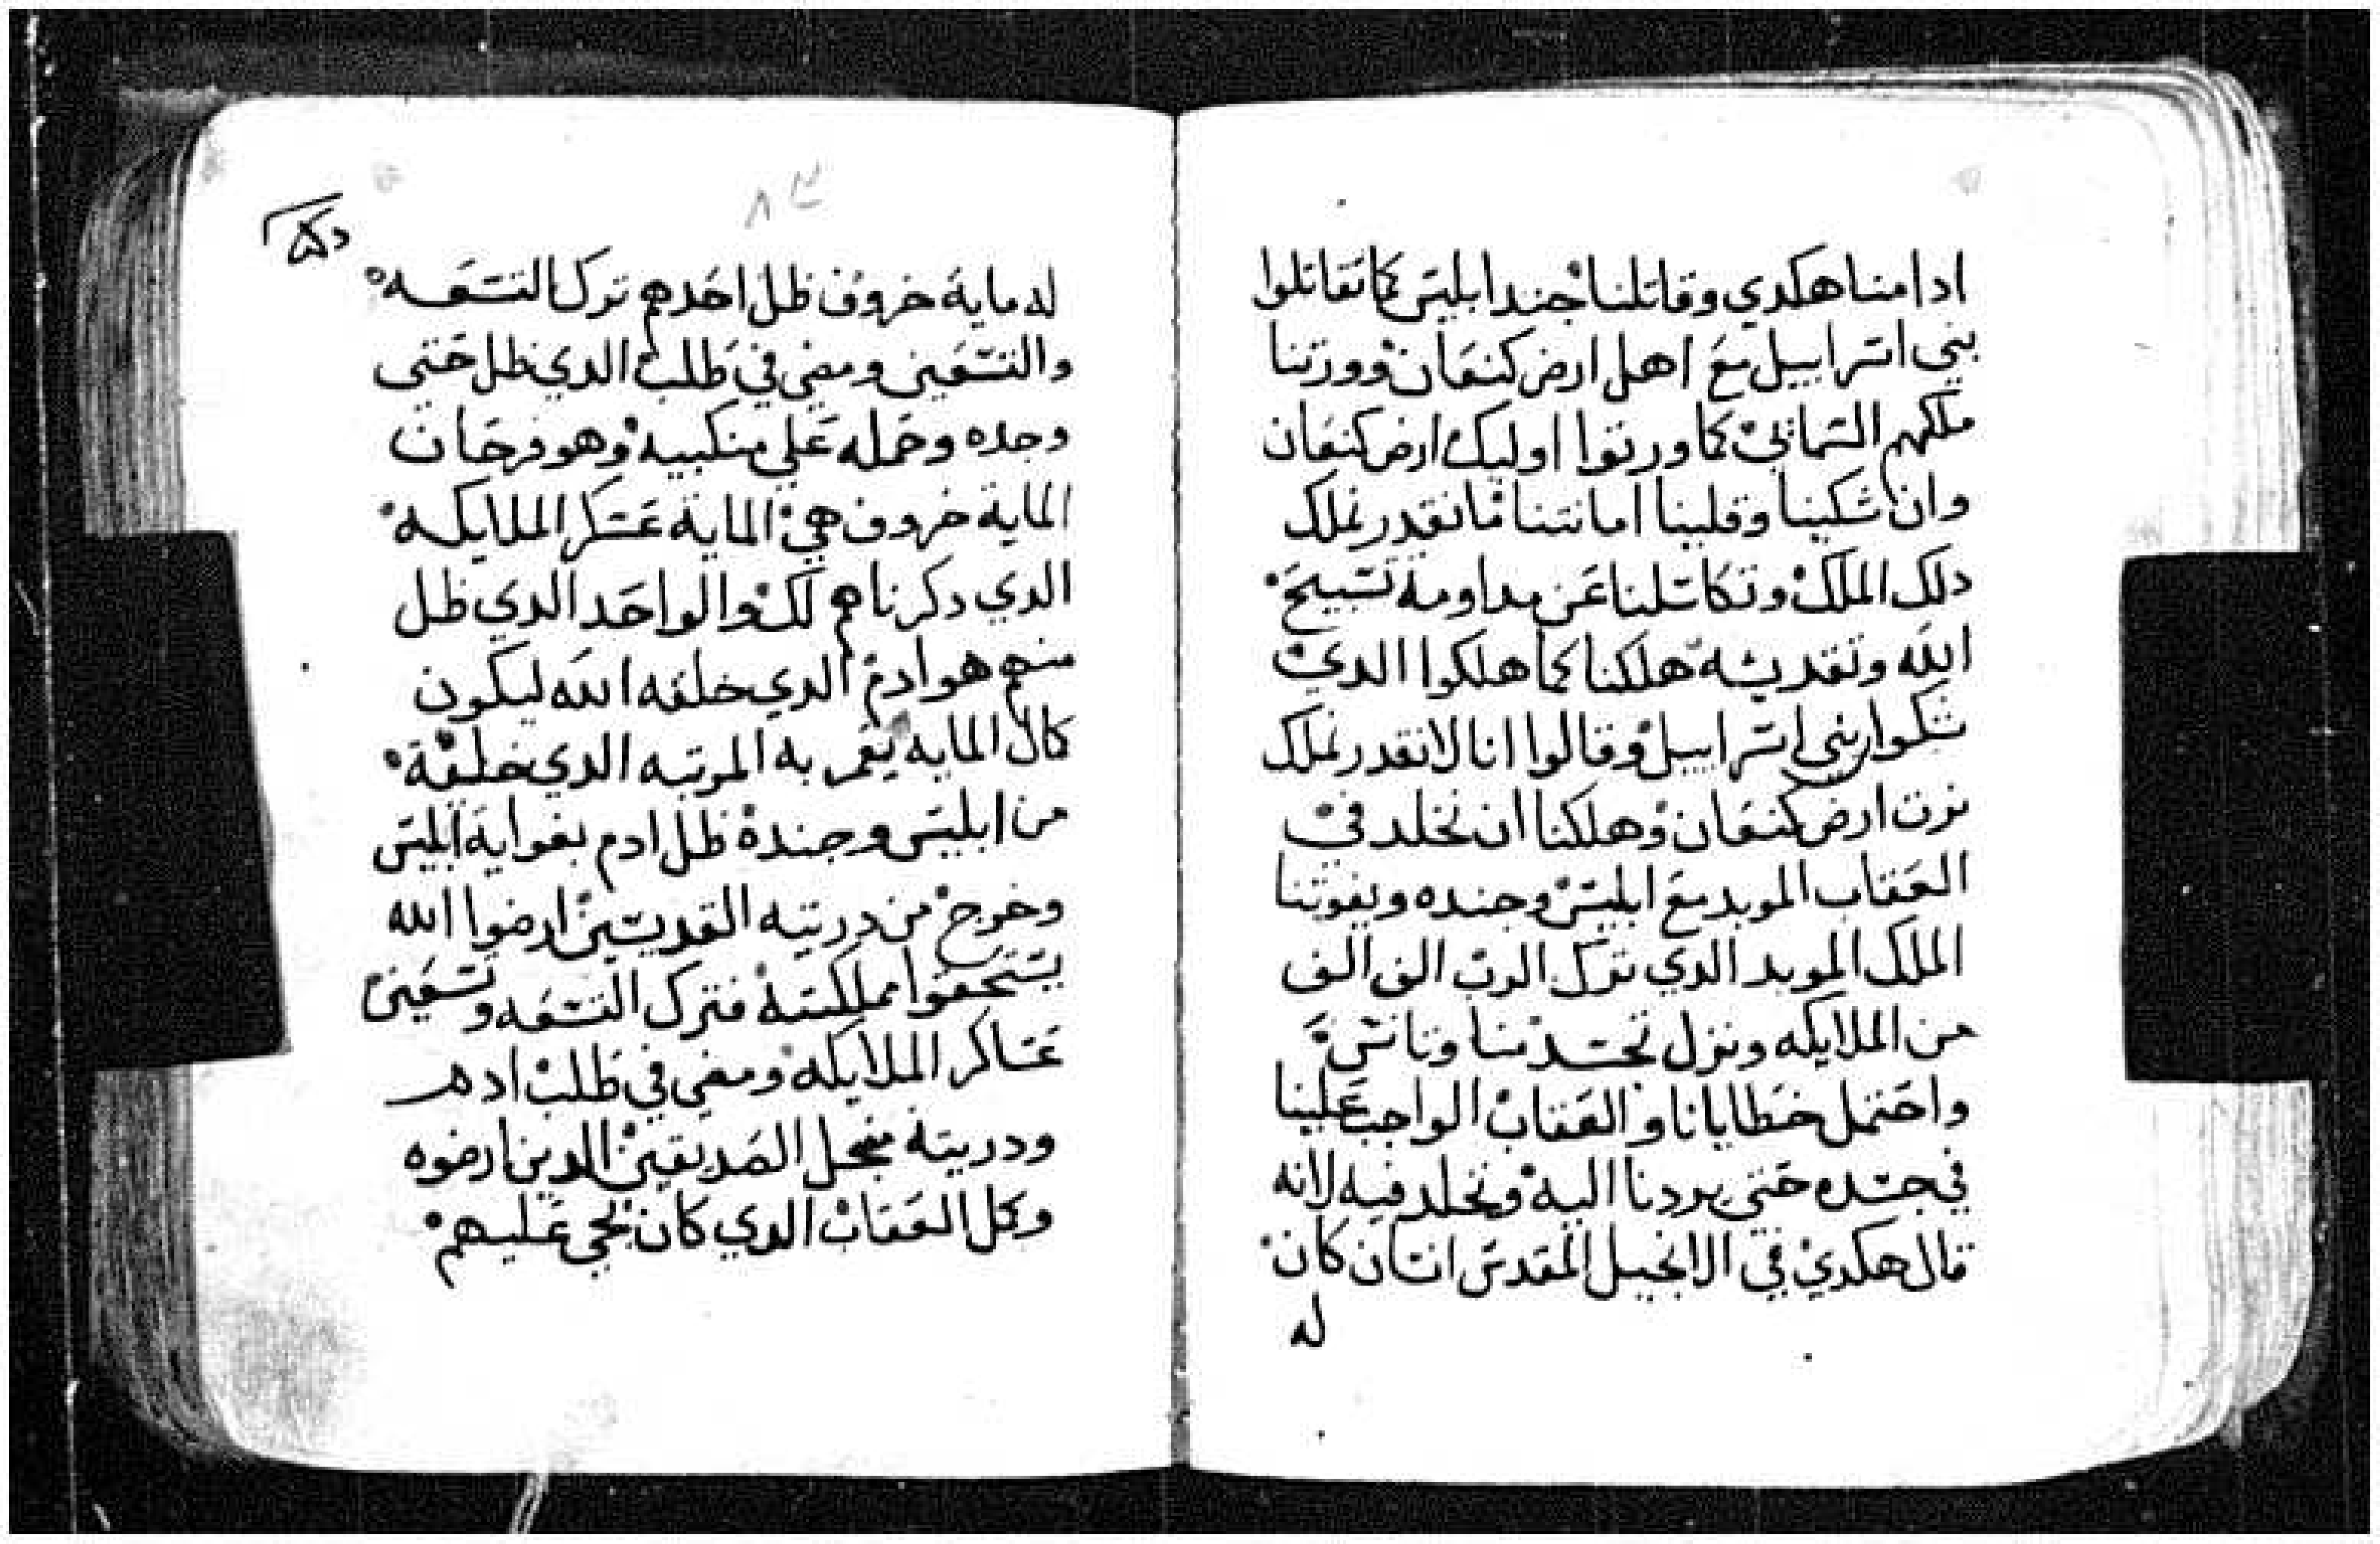 ادا منا هكدي وقاتلنا جند ابليس كما تقاتلوا
بني اسراييل مع اهل ارض كنعان وورتنا
ملكهم السماني كما ورتوا اوليك ارض كنعان
وان شكينا وقلينا امانتنا ما نقدر نملك
دلك الملك وتكاسلنا عن مداومة تسبيح
الله وتقديسه هلكنا كما هلكوا الدي
شكوا بني اسراييل وقالوا انا لا نقدر نملك
نرت ارض كنعان وهلكنا ان نخلد في
العقاب الموبد مع ابليس وجنده ويفوتنا
الملك الموبد الدي ترك الرب الف الف
من الملايكه ونزل تجسد منا وتانس
واحتمل خطايانا والعقاب الواجب علينا
في جسده حتي يردنا اليه ونخلد فيه لانه
قال هكدي في الانجيل المقدس انسان كان
له
٨٣
له ماية خروف ظل احدهم ترك التسعه
والتسعين ومضي في طلب الدي ظل حتي
وجده وحمله علي منكبيه وهو فرحان
الماية خروف هي الماية عسكر الملايكه
الدي دكرناهم لك والواحد الدي ظل
منهم هو ادم الدي خلقه الله ليكون
كال المايه يعمر به المرتبه الدي خلقة
من ابليس وجندة ظل ادم بغواية ابليس
وخرج من دريته القديسين ارضوا الله
يستحقوا مملكته فترك التسعه وتسعين
عساكر الملايكه ومضي في طلب ادم
ودريته منجل الصديقين الدين ارضوه
وكل العقاب الدي كان يجي عليهم